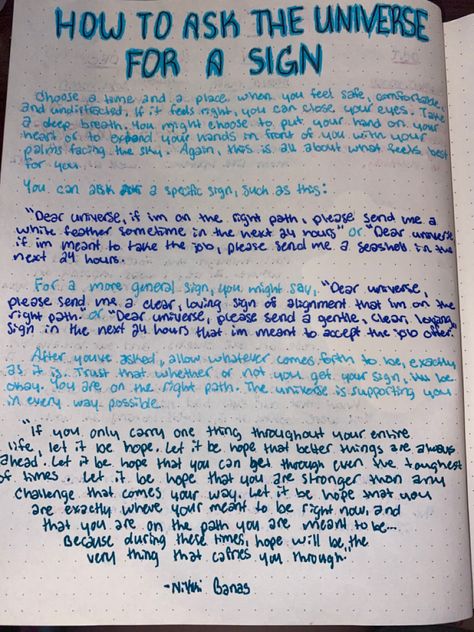 HOW TO ASK THE UNIVERSE
FOR A SIGN
Choose a time and a place when you feel safe, comfortable,
and undistracted. If it feels right, you can close your eyes. Take
a deep breath. You might choose to put your hand on your
heart or to extend your hands in front of you with your
palms facing the sky. Again, this is all about what feels best
for you.
You can ask for a specific sign, such as this:
"Dear universe, if im on the right path, please send me a
white feather sometime in the next 24 hours" or "Dear universe
if im meant to take the job, please send me a seashell in the
next 24 hours.
For a more general sign, you might say, "Dear universe,
please send me a clear, loving sign of alignment that im on the
right path" or "Dear universe, please send a gentle, clear, loving
sign in the next 24 hours that im meant to accept the job offer."
After you've asked, allow whatever comes forth to be, exactly
as it is. Trust that whether or not you get your sign, it'll be
okay. You are on the right path. The universe is supporting you
in every way possible.
"If you only carry one thing throughout your entire
life, let it be hope. Let it be hope that better things are always
ahead. Let it be hope that you can get through even the toughest
of times. Let it be hope that you are stronger than any
challenge that comes your way. Let it be hope that you
are exactly where your meant to be right now, and
that you are on the path you are meant to be...
Because during these times, hope will be the
very thing that carries you through."
- Nikki Banas